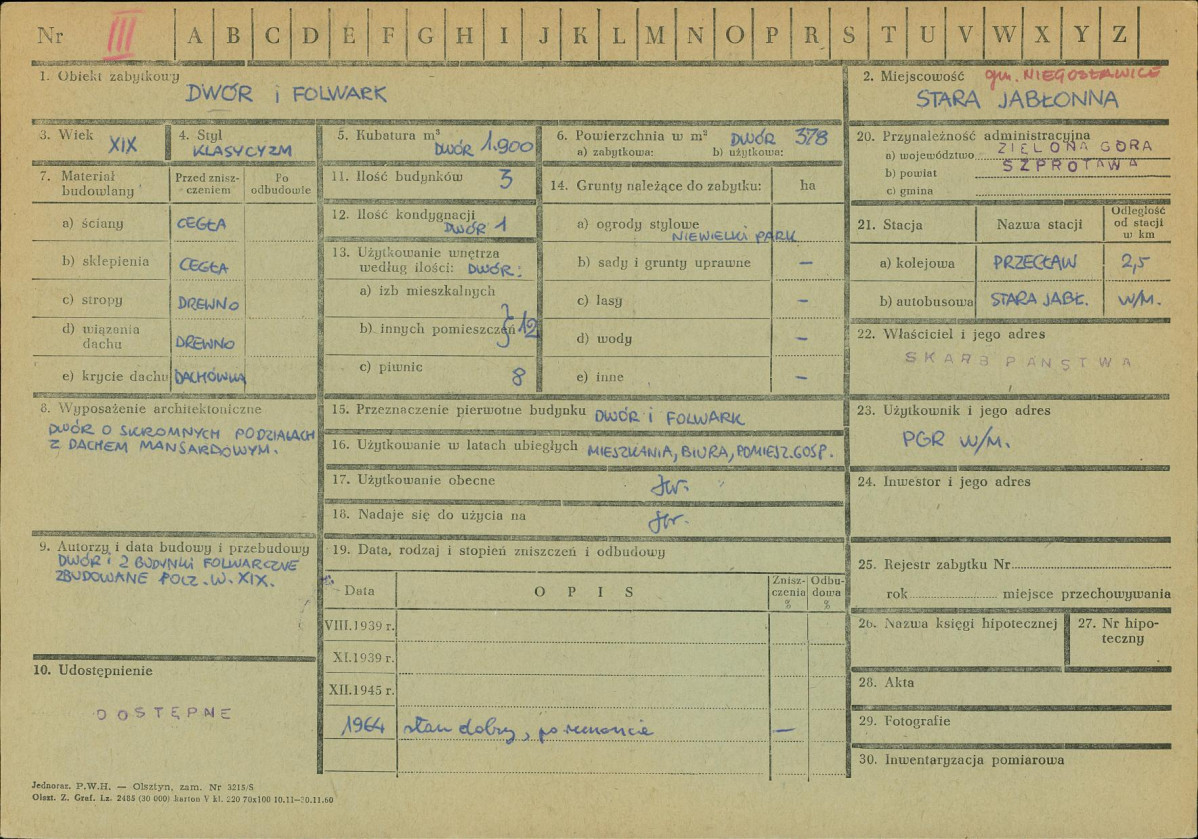 Nr III A B C D E F G H I J K L M N O P R S T U V W X Y Z
1. Obiekt zabytkowy
DWÓR i FOLWARK
2. Miejscowość gm. NIEGOSŁAWICE
STARA JABŁONNA
3. Wiek
XIX
4. Styl
KLASYCYZM
5. Kubatura m³
DWÓR 1.900
6. Powierzchnia w m² DWÓR 378
a) zabytkowa: b) użytkowa:
7. Materiał
budowlany
Przed znisz-
czeniem
Po
odbudowie
a) ściany CEGŁA
b) sklepienia CEGŁA
c) stropy DREWNO
d) wiązania
dachu DREWNO
e) krycie dachu DACHÓWKA
8. Wyposażenie architektoniczne
DWÓR O SKROMNYCH PODZIAŁACH
Z DACHEM MANSARDOWYM.
9. Autorzy i data budowy i przebudowy
DWÓR i 2 BUDYNKI FOLWARCZNE
ZBUDOWANE POCZ. W. XIX.
10. Udostępnienie
DOSTĘPNE
11. Ilość budynków 3
12. Ilość kondygnacji
DWÓR 1
13. Użytkowanie wnętrza
według ilości: DWÓR:
a) izb mieszkalnych
b) innych pomieszczeń } 12
c) piwnic 8
14. Grunty należące do zabytku: ha
a) ogrody stylowe
NIEWIELKI PARK
b) sady i grunty uprawne —
c) lasy —
d) wody —
e) inne —
15. Przeznaczenie pierwotne budynku DWÓR i FOLWARK
16. Użytkowanie w latach ubiegłych MIESZKANIA, BIURA, POMIESZ. GOSP.
17. Użytkowanie obecne jw.
18. Nadaje się do użycia na jw.
19. Data, rodzaj i stopień zniszczeń i odbudowy
Data OPIS
Znisz-
czenia
%
Odbu-
dowa
%
VIII.1939 r.
XI.1939 r.
XII.1945 r.
1964 stan dobry, po remoncie —
20. Przynależność administracyjna
a) województwo ZIELONA GÓRA
b) powiat SZPROTAWA
c) gmina
21. Stacja Nazwa stacji
Odległość
od stacji
w km
a) kolejowa PRZECŁAW 2,5
b) autobusowa STARA JABŁ. W/M.
22. Właściciel i jego adres
SKARB PAŃSTWA
23. Użytkownik i jego adres
PGR W/M.
24. Inwestor i jego adres
25. Rejestr zabytku Nr
rok miejsce przechowywania
26. Nazwa księgi hipotecznej
27. Nr hipo-
teczny
28. Akta
29. Fotografie
30. Inwentaryzacja pomiarowa
Jednoraz. P.W.H. — Olsztyn, zam. Nr 3215/S
Olszt. Z. Graf. Lz. 2485 (30 000) karton V kl. 220 70x100 10.11—30.11.60